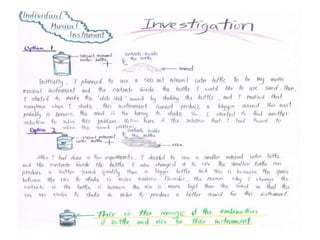 Individual
Musical
Instrument
Investigation
Option 1
500ml mineral
water bottle
contents inside
the bottle
sand
Initially, I planned to use a 500 ml mineral water bottle to be my main
musical instrument and the contents inside the bottle I would like to use sand. Then,
I started to make the sound by shaking the bottle, and I noticed that
when I shake, this instrument cannot produce a bigger sound. This most
probably is because the sand is too heavy to shake. So, I started to find another
solution to solve this problem. Below here is the solution that I had found to
solve the sound problem.
Option 2
mineral
water bottle
contents inside
the bottle
rice
After I had done a few experiments, I decided to use a smaller mineral water bottle
and the contents inside the bottle I also changed it to rice. The smaller bottle can
produce a better sound quality than a bigger bottle and this is because the space
between the rice to shake is more. Moreover, the reason why I change the
contents in the bottle is because the rice is more light than the sand so that the
rice are easier to shake in order to produce a better sound for this instrument.
This is the image of the combination
of bottle and rice for this instrument.